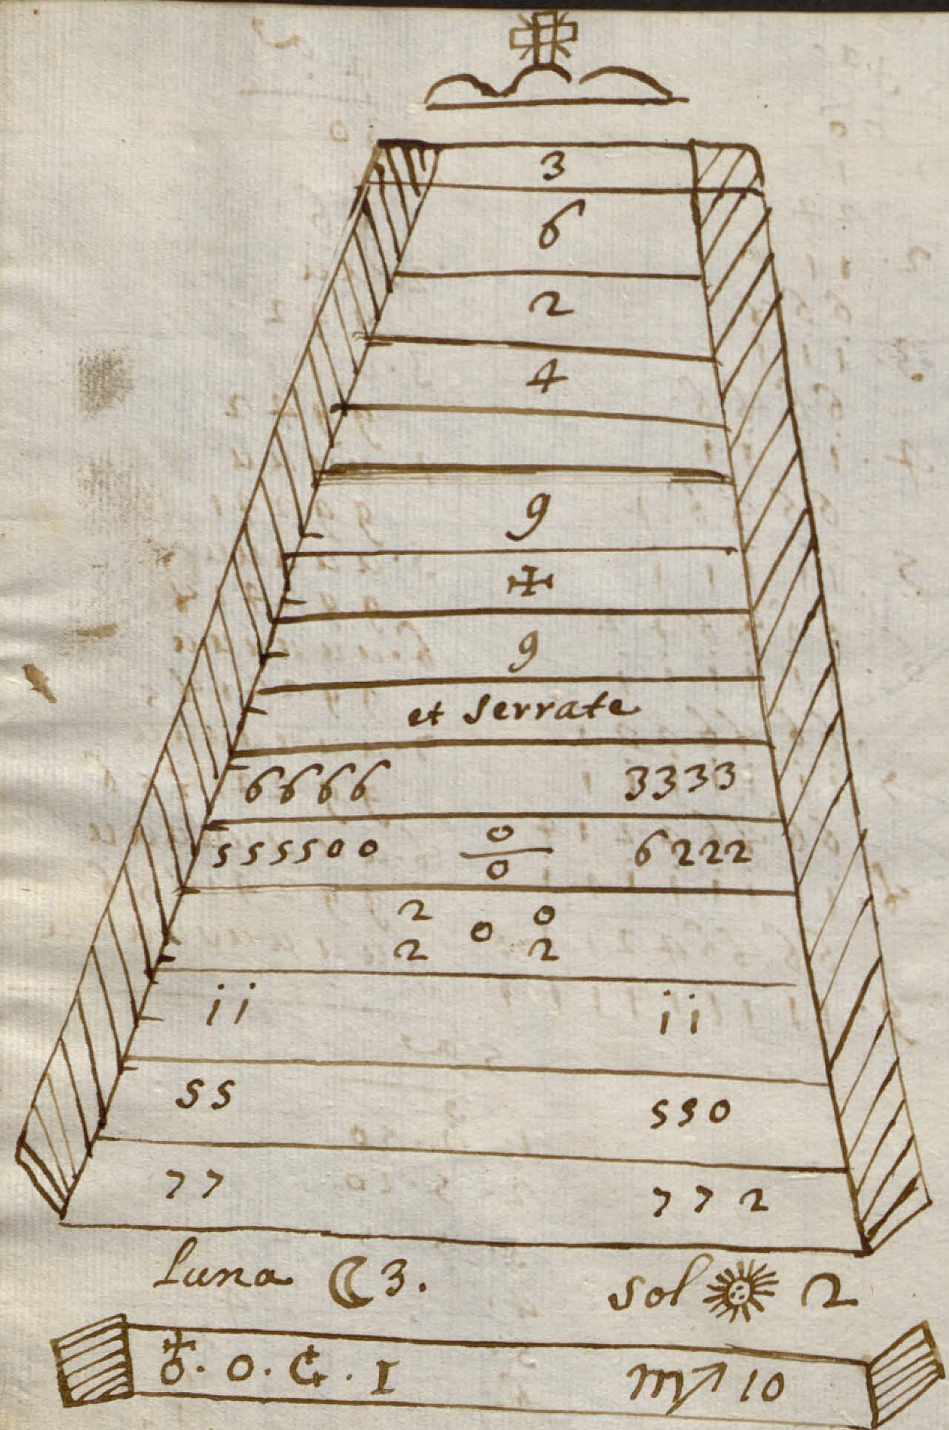 3
6
2
4
9
✠
9
et serrate
6666 3333
555500 0/0 6222
2 0
0
2 2
ii ii
55 550
77 772
luna ☾3. sol ☀ 2
♁. 0. . I ♏ 10